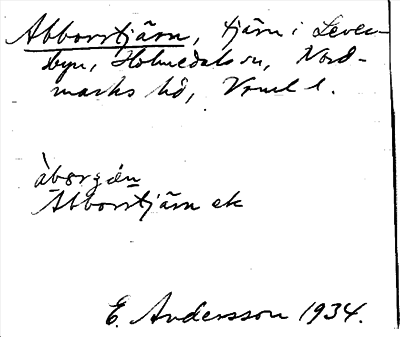 Abborrtjärn, tjärn i Leven-
byn, Holmedals sn, Nord-
marks hd, Vrml l.
àborgän
Abborrtjärn ek
E. Andersson 1934.